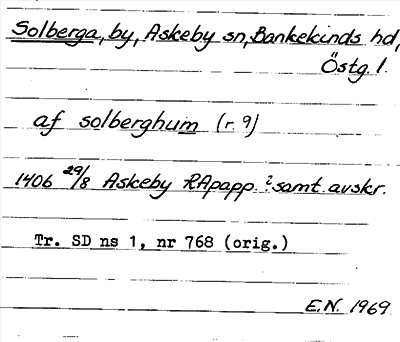 Solberga, by, Askeby sn, Bankekinds hd,
Östg. l.
af solberghum (r. 9)
1406 29/8 Askeby RApapp. ? samt. avskr.
Tr. SD ns 1, nr 768 (orig.)
E.N. 1969